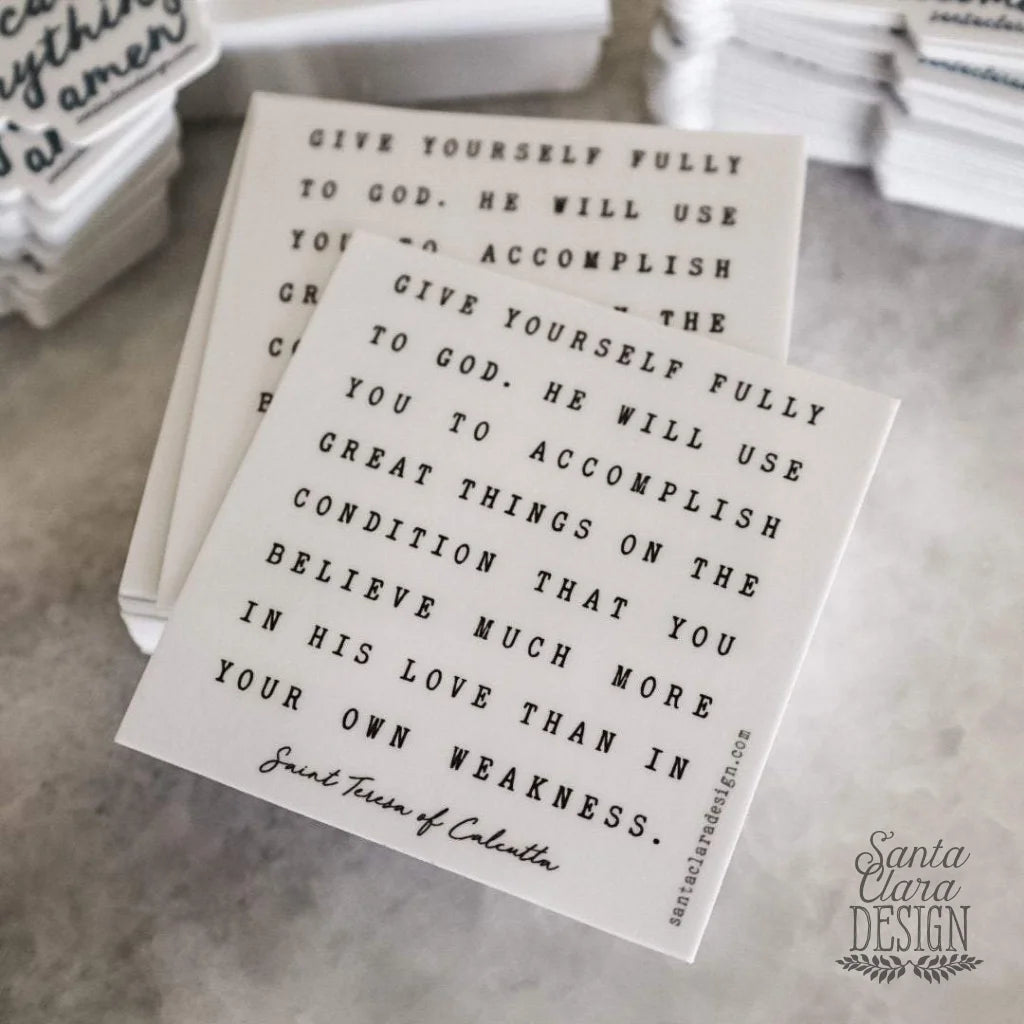 ything
amen
GIVE YOURSELF FULLY
TO GOD. HE WILL USE
YOU TO ACCOMPLISH
THE
GIVE YOURSELF FULLY
TO GOD. HE WILL USE
YOU TO ACCOMPLISH
GREAT THINGS ON THE
CONDITION THAT YOU
BELIEVE MUCH MORE
IN HIS LOVE THAN IN
YOUR OWN WEAKNESS.
Saint Teresa of Calcutta
santaclaradesign.com
Santa
Clara
DESIGN